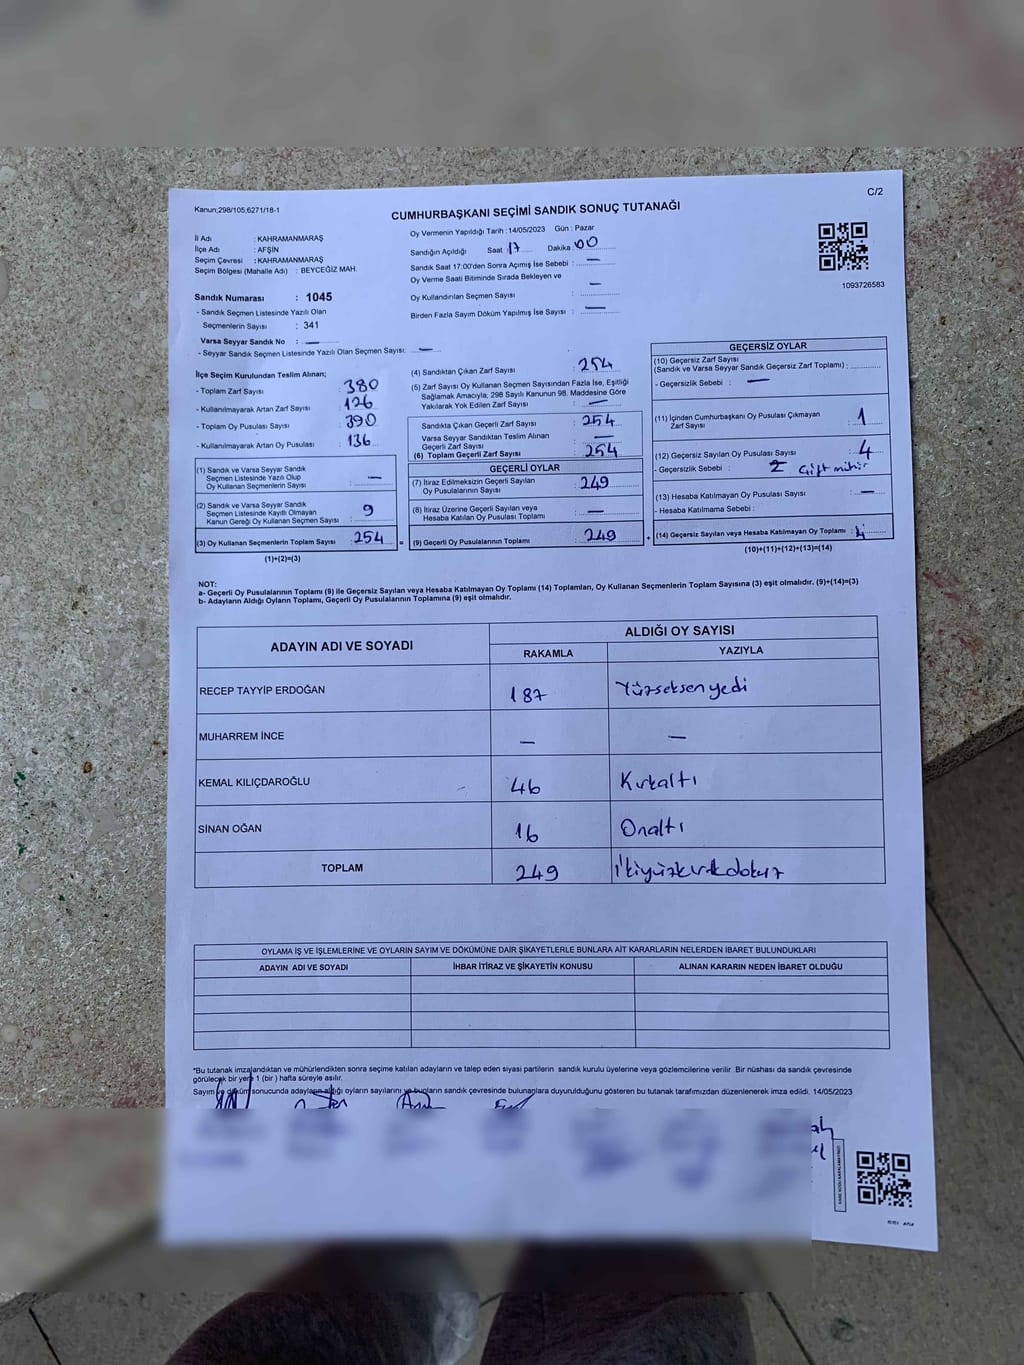 C/2
Kanun;298/105;6271/18-1
CUMHURBAŞKANI SEÇİMİ SANDIK SONUÇ TUTANAĞI
İl Adı : KAHRAMANMARAŞ
İlçe Adı : AFŞİN
Seçim Çevresi : KAHRAMANMARAŞ
Seçim Bölgesi (Mahalle Adı) : BEYCEĞİZ MAH.
Oy Vermenin Yapıldığı Tarih :14/05/2023 Gün : Pazar
Sandığın Açıldığı Saat : 17 Dakika : 00
Sandık Saat 17:00'den Sonra Açımış İse Sebebi : —
Oy Verme Saati Bitiminde Sırada Bekleyen ve
Oy Kullandırılan Seçmen Sayısı : —
Birden Fazla Sayım Döküm Yapılmış İse Sayısı : —
1093726583
Sandık Numarası : 1045
- Sandık Seçmen Listesinde Yazılı Olan
Seçmenlerin Sayısı : 341
Varsa Seyyar Sandık No : —
- Seyyar Sandık Seçmen Listesinde Yazılı Olan Seçmen Sayısı: —
İlçe Seçim Kurulundan Teslim Alınan;
- Toplam Zarf Sayısı : 380
- Kullanılmayarak Artan Zarf Sayısı : 126
- Toplam Oy Pusulası Sayısı : 390
- Kullanılmayarak Artan Oy Pusulası : 136
(1) Sandık ve Varsa Seyyar Sandık
Seçmen Listesinde Yazılı Olup
Oy Kullanan Seçmenlerin Sayısı : —
(2) Sandık ve Varsa Seyyar Sandık
Seçmen Listesinde Kayıtlı Olmayan
Kanun Gereği Oy Kullanan Seçmen Sayısı : 9
(3) Oy Kullanan Seçmenlerin Toplam Sayısı : 254 =
(1)+(2)=(3)
(4) Sandıktan Çıkan Zarf Sayısı : 254
(5) Zarf Sayısı Oy Kullanan Seçmen Sayısından Fazla İse, Eşitliği
Sağlamak Amacıyla; 298 Sayılı Kanunun 98. Maddesine Göre
Yakılarak Yok Edilen Zarf Sayısı : —
Sandıkta Çıkan Geçerli Zarf Sayısı : 254
Varsa Seyyar Sandıktan Teslim Alınan
Geçerli Zarf Sayısı : —
(6) Toplam Geçerli Zarf Sayısı : 254
GEÇERLİ OYLAR
(7) İtiraz Edilmeksizin Geçerli Sayılan
Oy Pusulalarının Sayısı : 249
(8) İtiraz Üzerine Geçerli Sayılan veya
Hesaba Katılan Oy Pusulası Toplamı : —
(9) Geçerli Oy Pusulalarının Toplamı : 249 +
GEÇERSİZ OYLAR
(10) Geçersiz Zarf Sayısı
(Sandık ve Varsa Seyyar Sandık Geçersiz Zarf Toplamı) :
- Geçersizlik Sebebi : —
(11) İçinden Cumhurbaşkanı Oy Pusulası Çıkmayan
Zarf Sayısı : 1
(12) Geçersiz Sayılan Oy Pusulası Sayısı : 4
- Geçersizlik Sebebi : 2 çift mühür
(13) Hesaba Katılmayan Oy Pusulası Sayısı : —
- Hesaba Katılmama Sebebi :
(14) Geçersiz Sayılan veya Hesaba Katılmayan Oy Toplamı :
(10)+(11)+(12)+(13)=(14)
NOT:
a- Geçerli Oy Pusulalarının Toplamı (9) ile Geçersiz Sayılan veya Hesaba Katılmayan Oy Toplamı (14) Toplamları, Oy Kullanan Seçmenlerin Toplam Sayısına (3) eşit olmalıdır. (9)+(14)=(3)
b- Adayların Aldığı Oyların Toplamı, Geçerli Oy Pusulalarının Toplamına (9) eşit olmalıdır.
ADAYIN ADI VE SOYADI
ALDIĞI OY SAYISI
RAKAMLA YAZIYLA
RECEP TAYYİP ERDOĞAN 187 Yüzseksenyedi
MUHARREM İNCE — —
KEMAL KILIÇDAROĞLU 46 Kırkaltı
SİNAN OĞAN 16 Onaltı
TOPLAM 249 İkiyüzkırkdokuz
OYLAMA İŞ VE İŞLEMLERİNE VE OYLARIN SAYIM VE DÖKÜMÜNE DAİR ŞİKAYETLERLE BUNLARA AİT KARARLARIN NELERDEN İBARET BULUNDUKLARI
ADAYIN ADI VE SOYADI İHBAR İTİRAZ VE ŞİKAYETİN KONUSU ALINAN KARARIN NEDEN İBARET OLDUĞU
*Bu tutanak imzalandıktan ve mühürlendikten sonra seçime katılan adayların ve talep eden siyasi partilerin sandık kurulu üyelerine veya gözlemcilerine verilir. Bir nüshası da sandık çevresinde
görülecek bir yere 1 (bir.) hafta süreyle asılır.
Sayım ve döküm sonucunda adayların aldığı oyların sayılarını ve bunların sandık çevresinde bulunanlara duyurulduğunu gösteren bu tutanak tarafımızdan düzenlenerek imza edildi. 14/05/2023